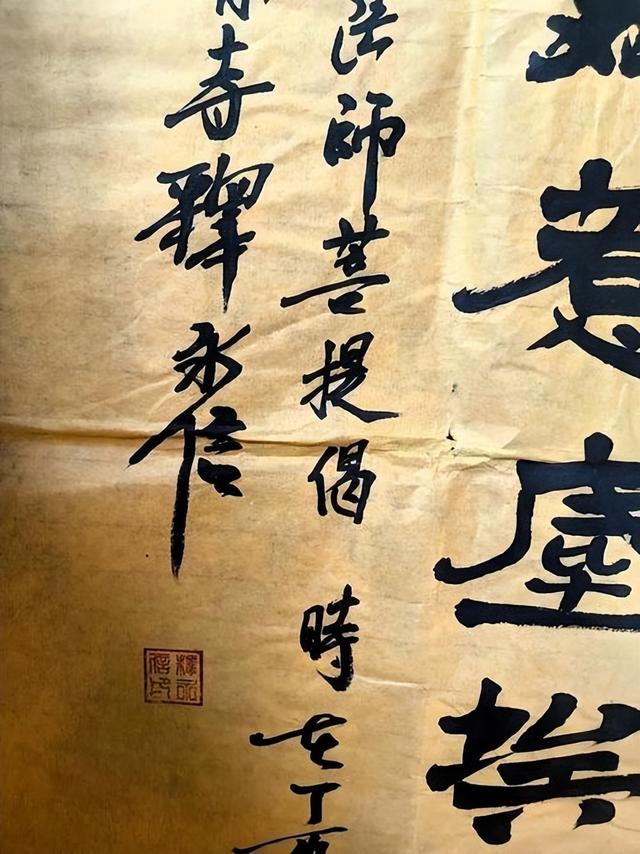 惹塵埃
法師菩提偈 時在丁酉
寺釋永信
釋永信印